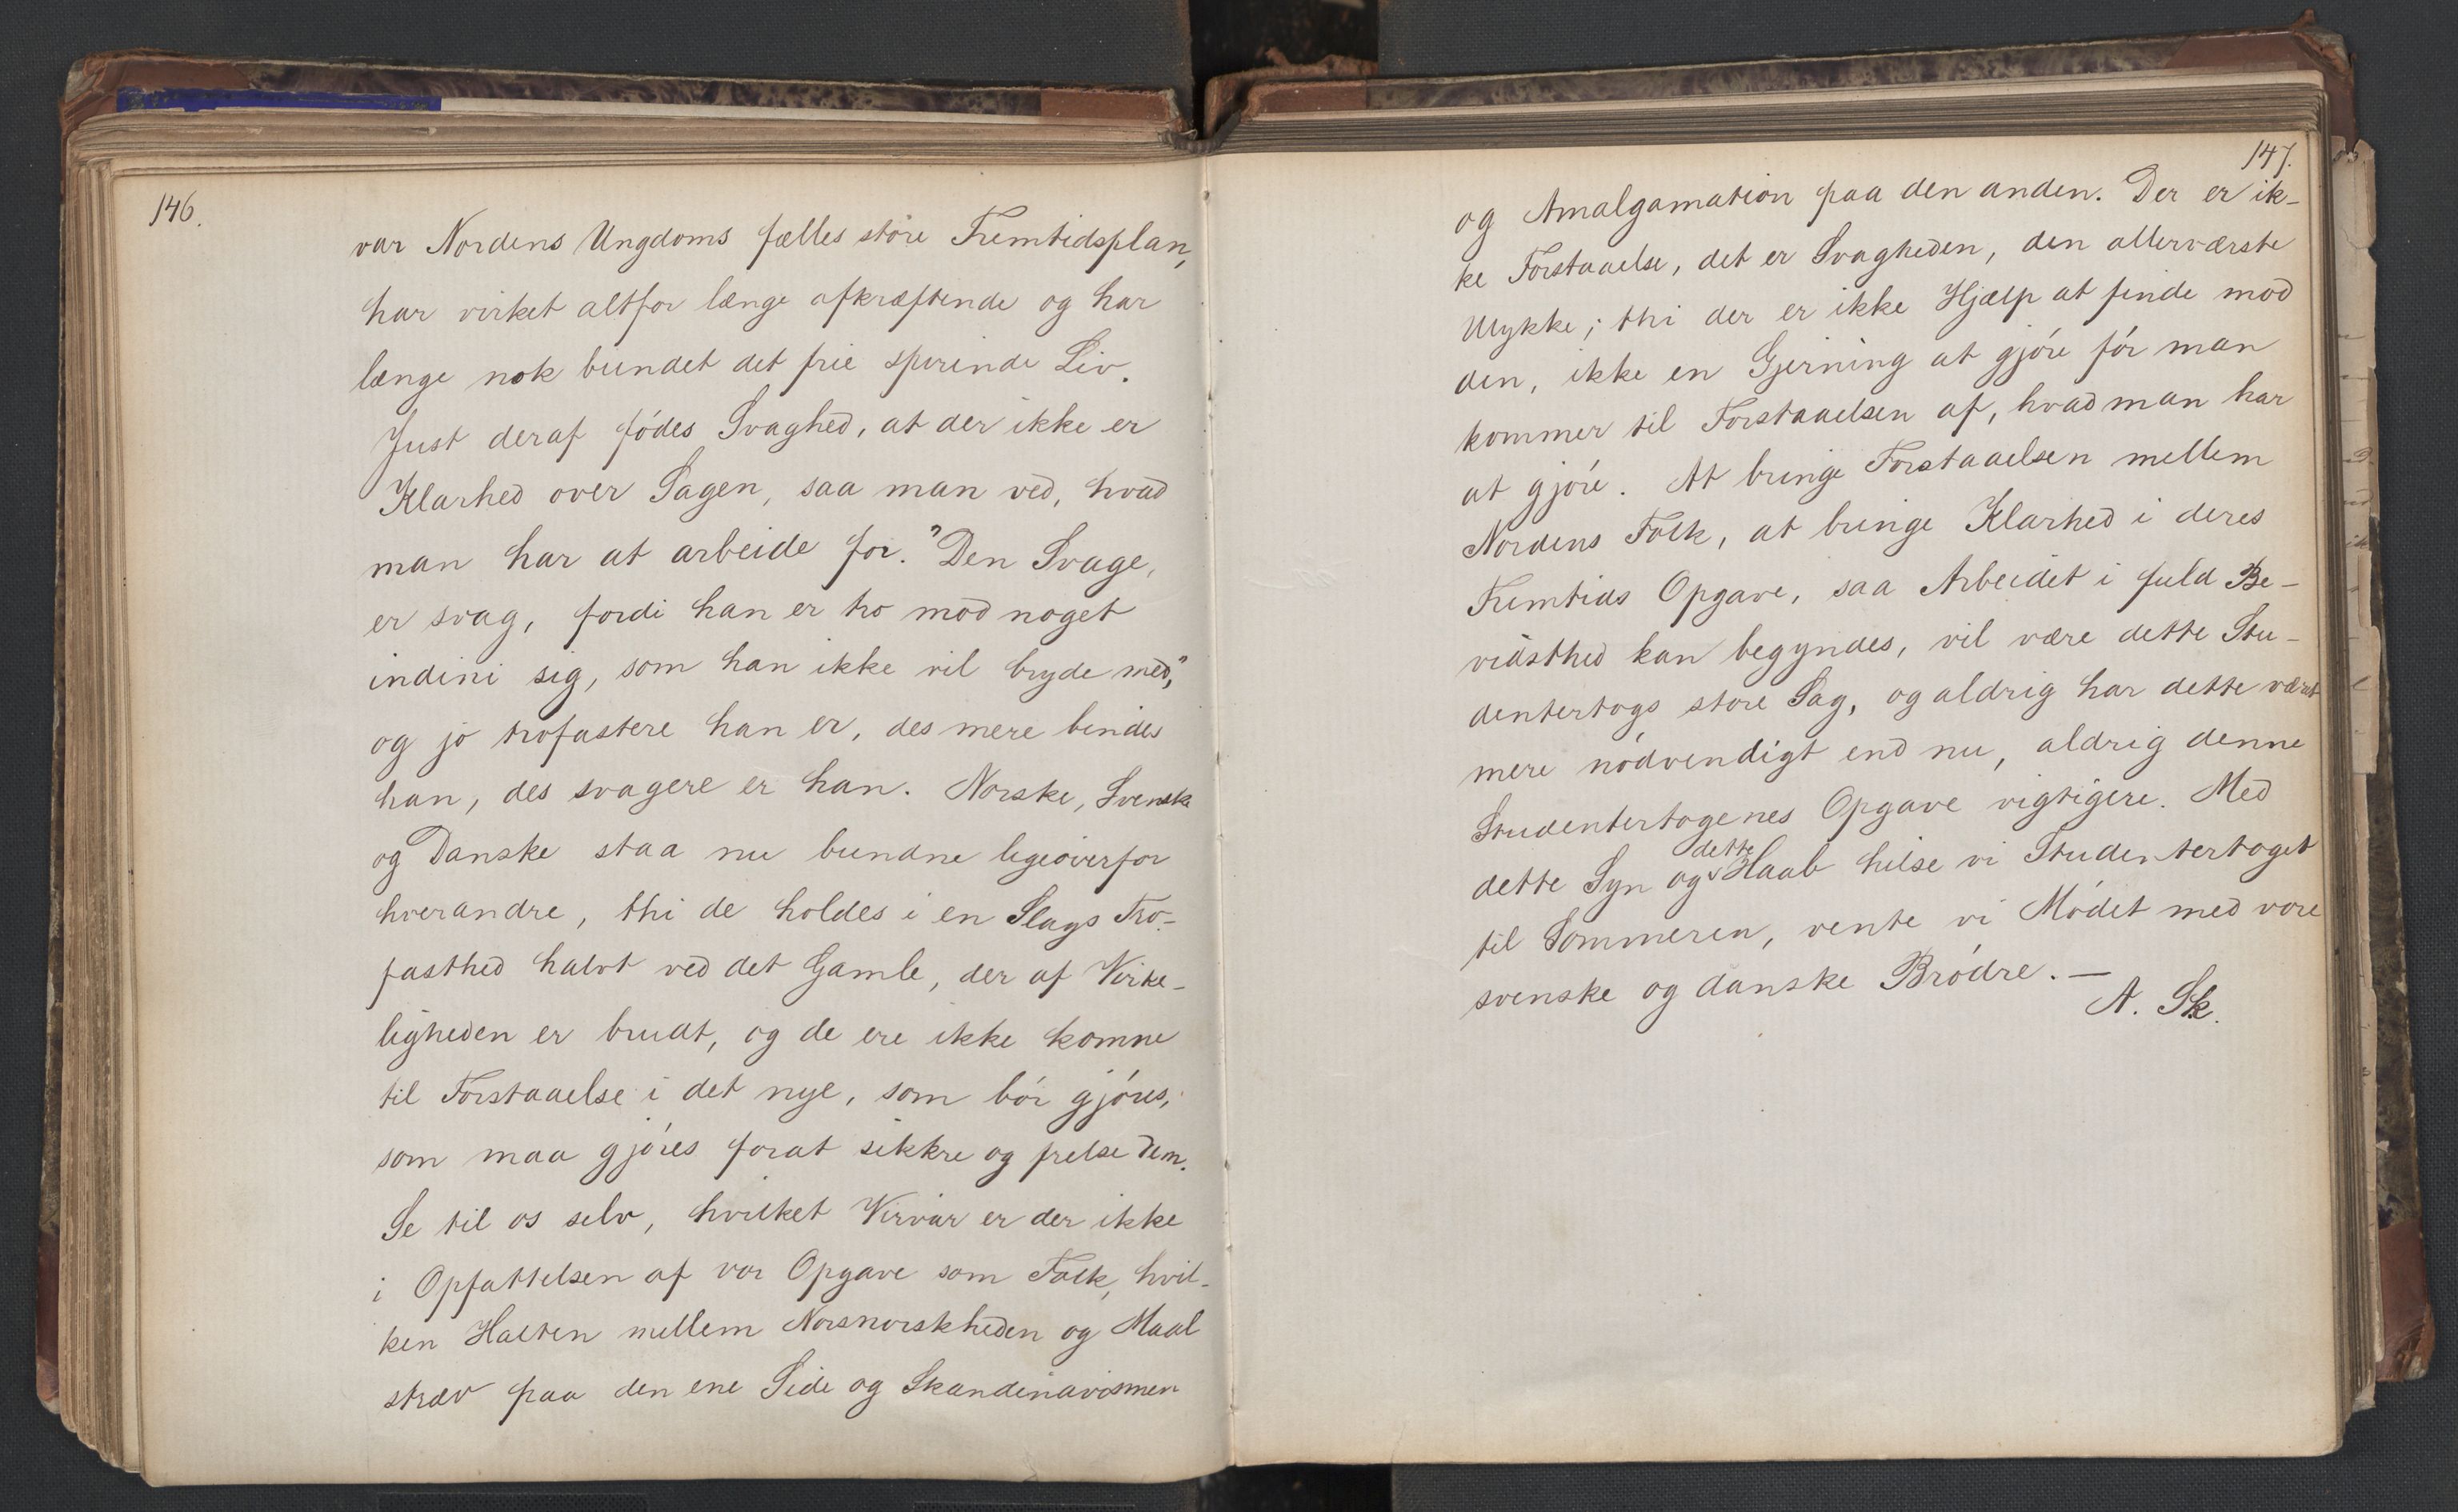 146.
var Nordens Ungdoms fælles store Fremtidsplan,
har virket altfor længe afkræftende og har
længe nok bundet det frie spirende Liv.
Just deraf fódes Svaghed, at der ikke er
Klarhed over Sagen, saa man ved, hvad
man har at arbeide for. "Den Svage,
er svag, fordi han er tro mod noget
indini sig, som han ikke vil bryde med",
og jo trofastere han er, des mere bindes
han, des svagere er han. Norske, Svenske
og Danske staa nu bundne ligeoverfor
hverandre, thi de holdes i en Slags Tro-
fasthed halvt ved det Gamle, der af Virke-
ligheden er brudt, og de ere ikke komne
til Forstaaelse i det nye, som bór gjóres,
som maa gjóres forat sikkre og frelse dem.
Se til os selv, hvilket Virvar er der ikke
i Opfattelsen af vor Opgave som Folk, hvil-
ken Halten mellem Norsnorskheden og Maal
stræv paa den ene Side og Skandinavismen
147.
og Amalgamation paa den anden. Der er ik-
ke Forstaaelse, det er Svagheden, den allerværste
Ulykke; thi der er ikke Hjælp at finde mod
den, ikke en Gjerning at gjóre fór man
kommer til Forstaaelsen af, hvad man har
at gjóre. At bringe Forstaaelsen mellem
Nordens Folk, at bringe Klarhed i deres
Fremtids Opgave, saa Arbeidet i fuld Be-
vidsthed kan begyndes, vil være dette Stu-
dentertogs store Sag, og aldrig har dette været
mere nódvendigt end nu, aldrig denne
Studentertogenes Opgave vigtigere. Med
dette Syn og dette Haab hilse vi Studentertoget
til Sommeren, vente vi Módet med vore
svenske og danske Bródre. —
A. Sk.